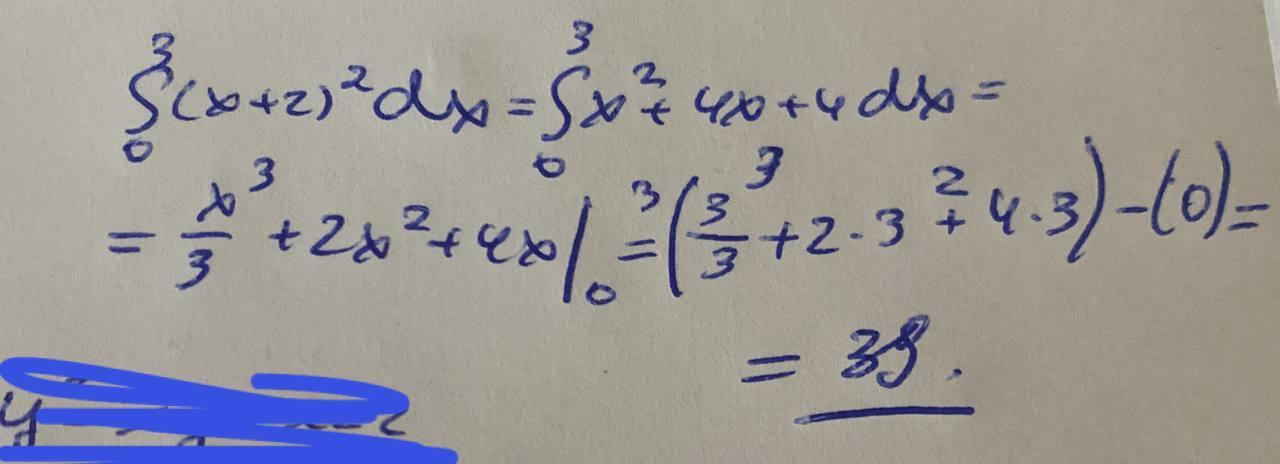 ∫₀³(x+2)²dx = ∫₀³x²+4x+4dx =
= x³/3 + 2x² + 4x |₀³ = (3³/3 + 2·3² + 4·3) - (0) =
= 39.